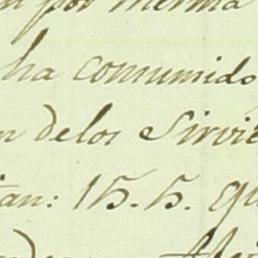 por merma
ha consumido
n delos Sirvie
tan: 15. 5. qu